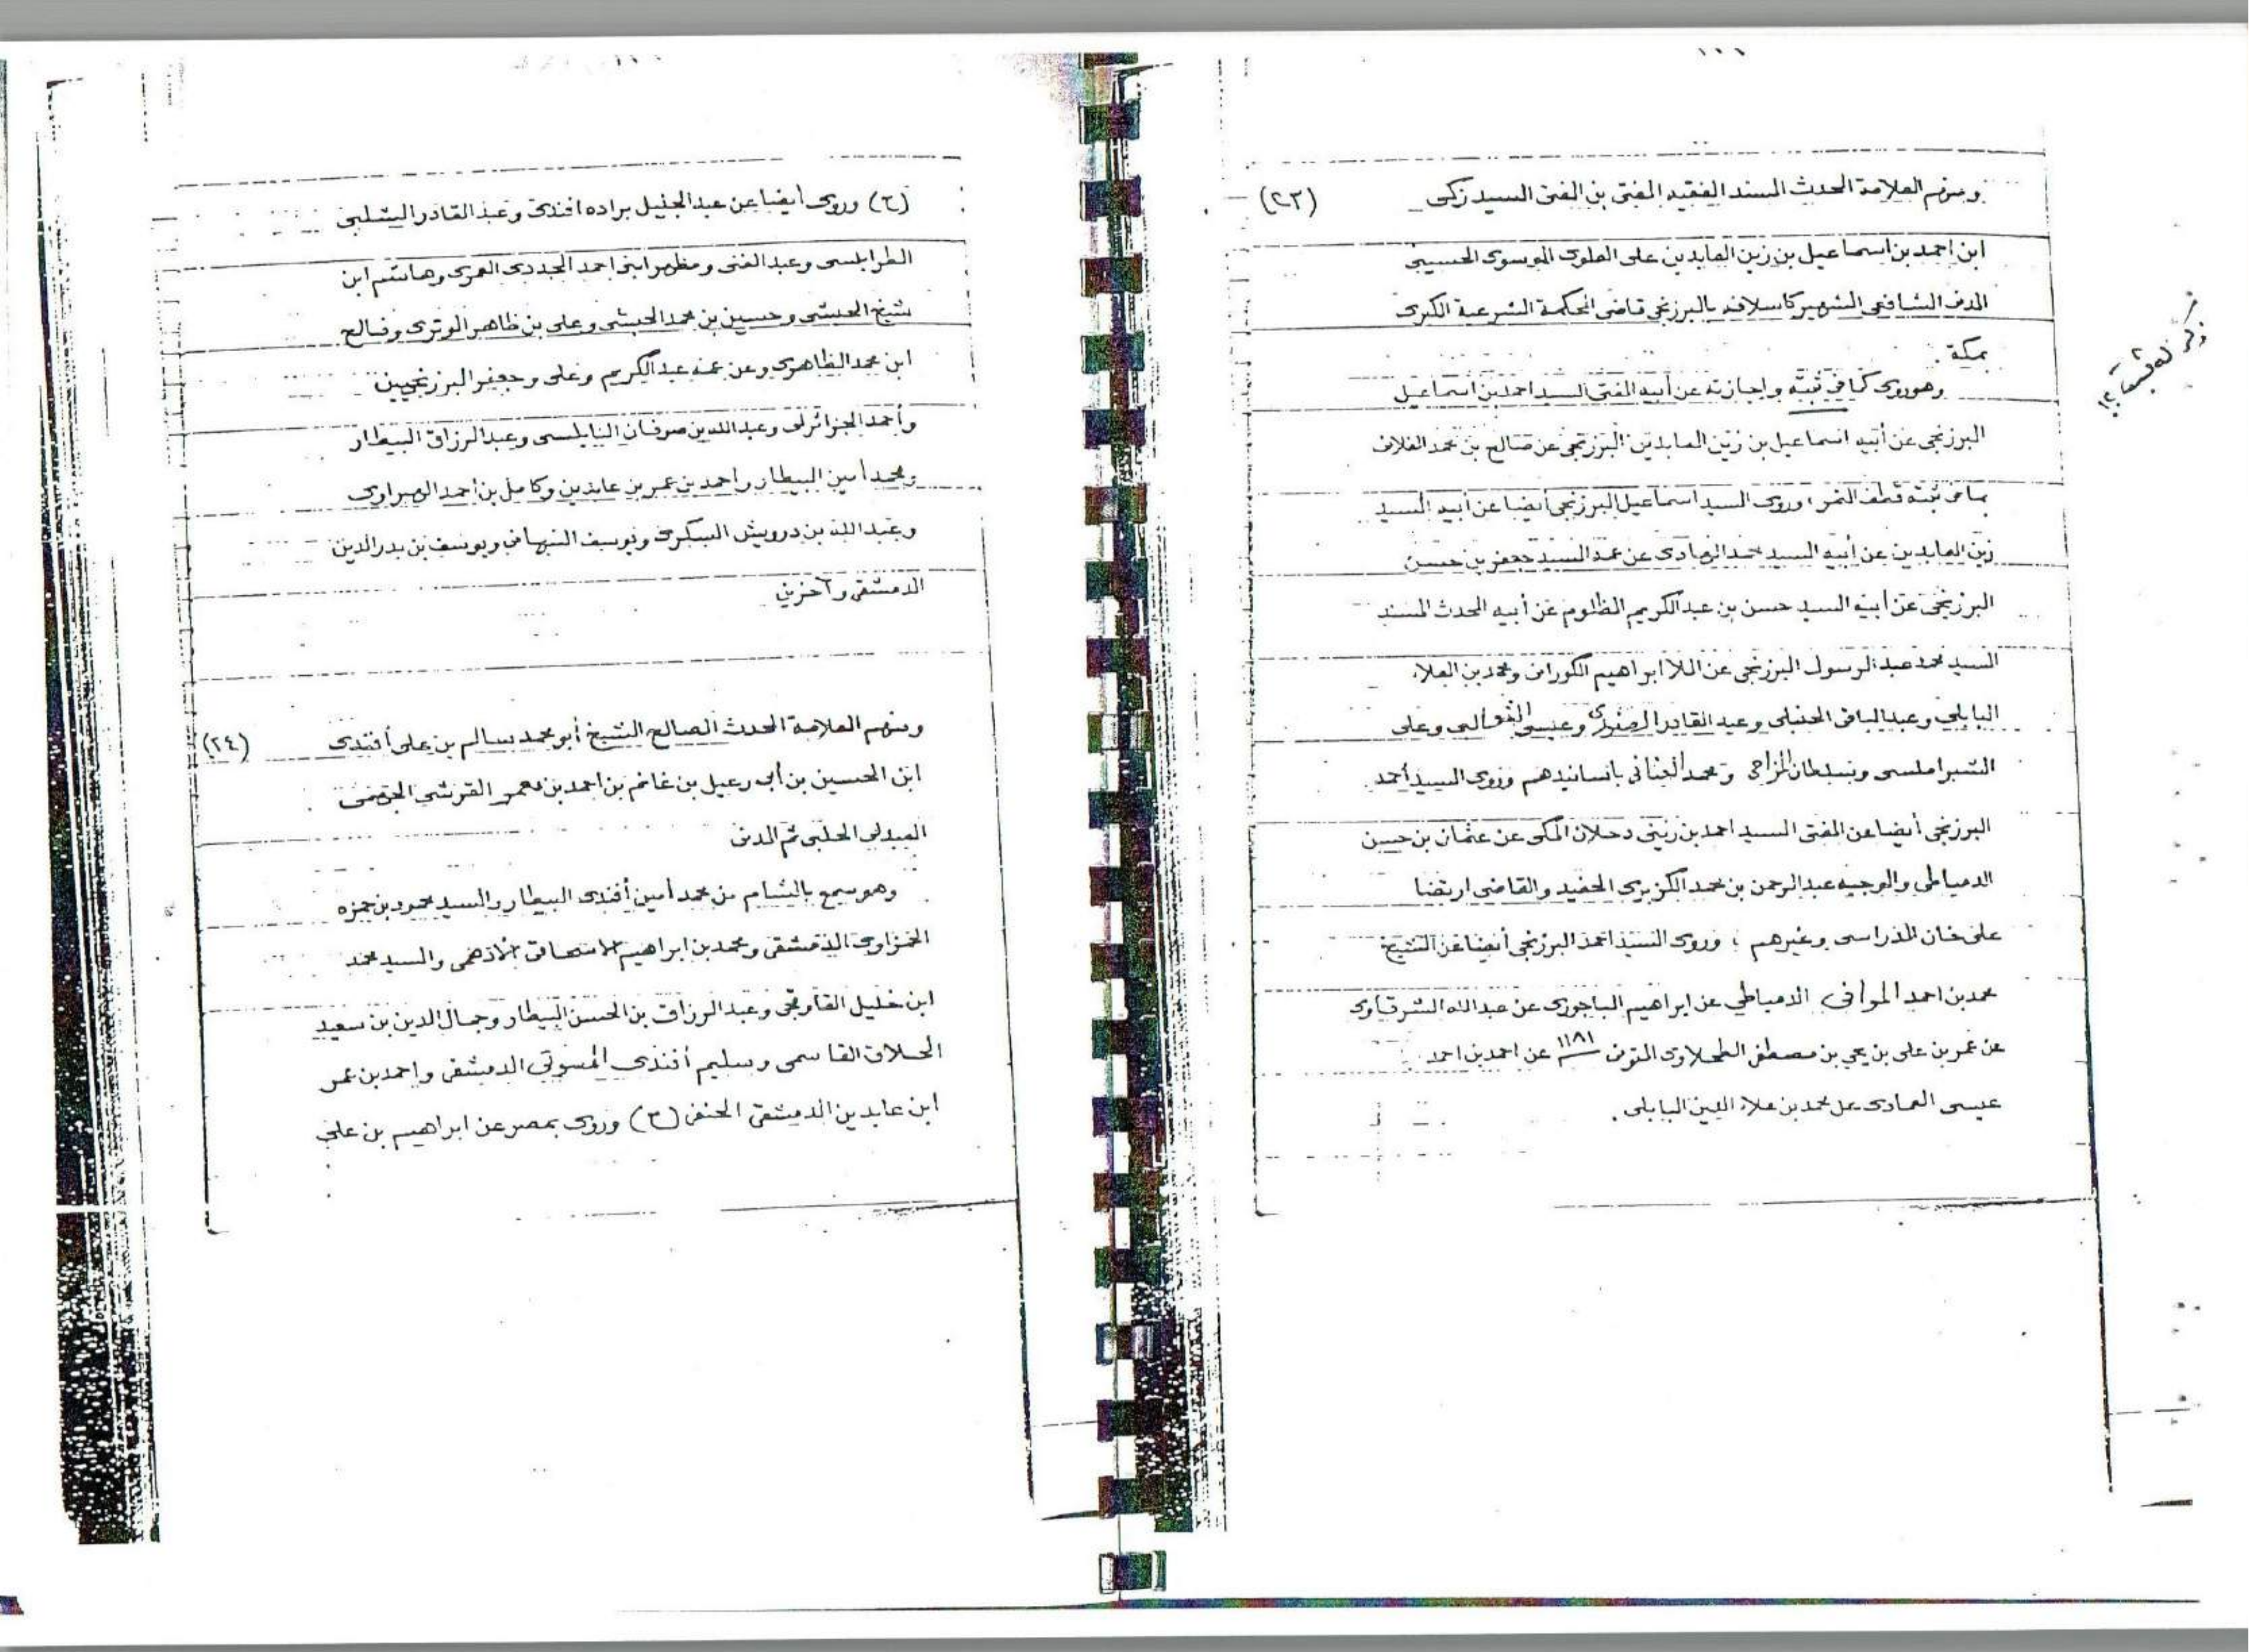 ومنهم العلامة المحدث المسند الفقيه المفتى بن المفتى السيد زكى (٢٣)
ابن احمد بن اسماعيل بن زين العابدين على العلوى الموسوى الحسينى
المدنى الشافعى الشهير كاسلافه بالبرزنجى قاضى المحكمة الشرعية الكبرى
بمكة .
وهو روى كما فى ثبته واجازته عن أبيه المفتى السيد احمد بن اسماعيل
البرزنجى عن أبيه اسماعيل بن زين العابدين البرزنجى عن صالح بن محمد الفلانى
بما فى ثبته قطف الثمر ، وروى السيد اسماعيل البرزنجى أيضا عن أبيه السيد
زين العابدين عن أبيه السيد محمد الهادى عن عمه السيد جعفر بن حسن
البرزنجى عن أبيه السيد حسن بن عبد الكريم المظلوم عن أبيه المحدث المسند
السيد محمد عبد الرسول البرزنجى عن الملا ابراهيم الكورانى ومحمد بن العلاء
البابلى وعبد الباقى الحنبلى وعبد القادر الصفورى وعيسى الثعالبى وعلى
الشبراملسى وسلطان المزاحى ومحمد العنانى بأسانيدهم وروى السيد أحمد
البرزنجى أيضا عن المفتى السيد احمد بن زينى دحلان المكى عن عثمان بن حسن
الدمياطى والوجيه عبد الرحمن بن محمد الكزبرى الحفيد والقاضى ارتضا
على خان المدراسى وغيرهم ؛ وروى السيد احمد البرزنجى أيضا عن الشيخ
محمد بن احمد الموافى الدمياطي عن ابراهيم الباجورى عن عبد الله الشرقاوى
عن عمر بن على بن يحيى بن مصطفى الطحلاوى المتوفى ١١٨١ عن احمد بن احمد
عيسى العمادى عن محمد بن علاء الدين البابلى .
(٢) وروى أيضا عن عبد الجليل براده افندى وعبد القادر الشلبى
الطرابلسى وعبد الغنى ومظهر ابنى احمد المجددى العمرى وهاشم ابن
شيخ الحبشى وحسين بن محمد الحبشى وعلى بن ظاهر الوترى وفالح
ابن محمد الظاهرى وعن عمه عبد الكريم وعلى وجعفر البرزنجيين
وأحمد الجزائرلى وعبد الله بن صوفان النابلسى وعبد الرزاق البيطار
ومحمد أمين البيطار واحمد بن عمر بن عابدين وكامل بن احمد الهبراوى
وعبد الله بن درويش السكرى ويوسف النبهانى ويوسف بن بدر الدين
الدمشقى وآخرين
ومنهم العلامة المحدث الصالح الشيخ أبو محمد سالم بن على أفندى (٢٤)
ابن الحسين بن أبى رعيل بن غانم بن احمد بن معمر القرشى
العبدلى الحلبى ثم المدنى
وهو سمع بالشام من محمد أمين أفندى البيطار والسيد محمود بن حمزه
الحمزاوى الدمشقى ومحمد بن ابراهيم والسيد محمد
ابن خليل القاوقجى وعبد الرزاق بن الحسن البيطار وجمال الدين بن سعيد
الحلاق القاسمى وسليم أفندى المسوتى الدمشقى واحمد بن عمر
ابن عابدين الدمشقى الحنفى (٣) وروى بمصر عن ابراهيم بن على